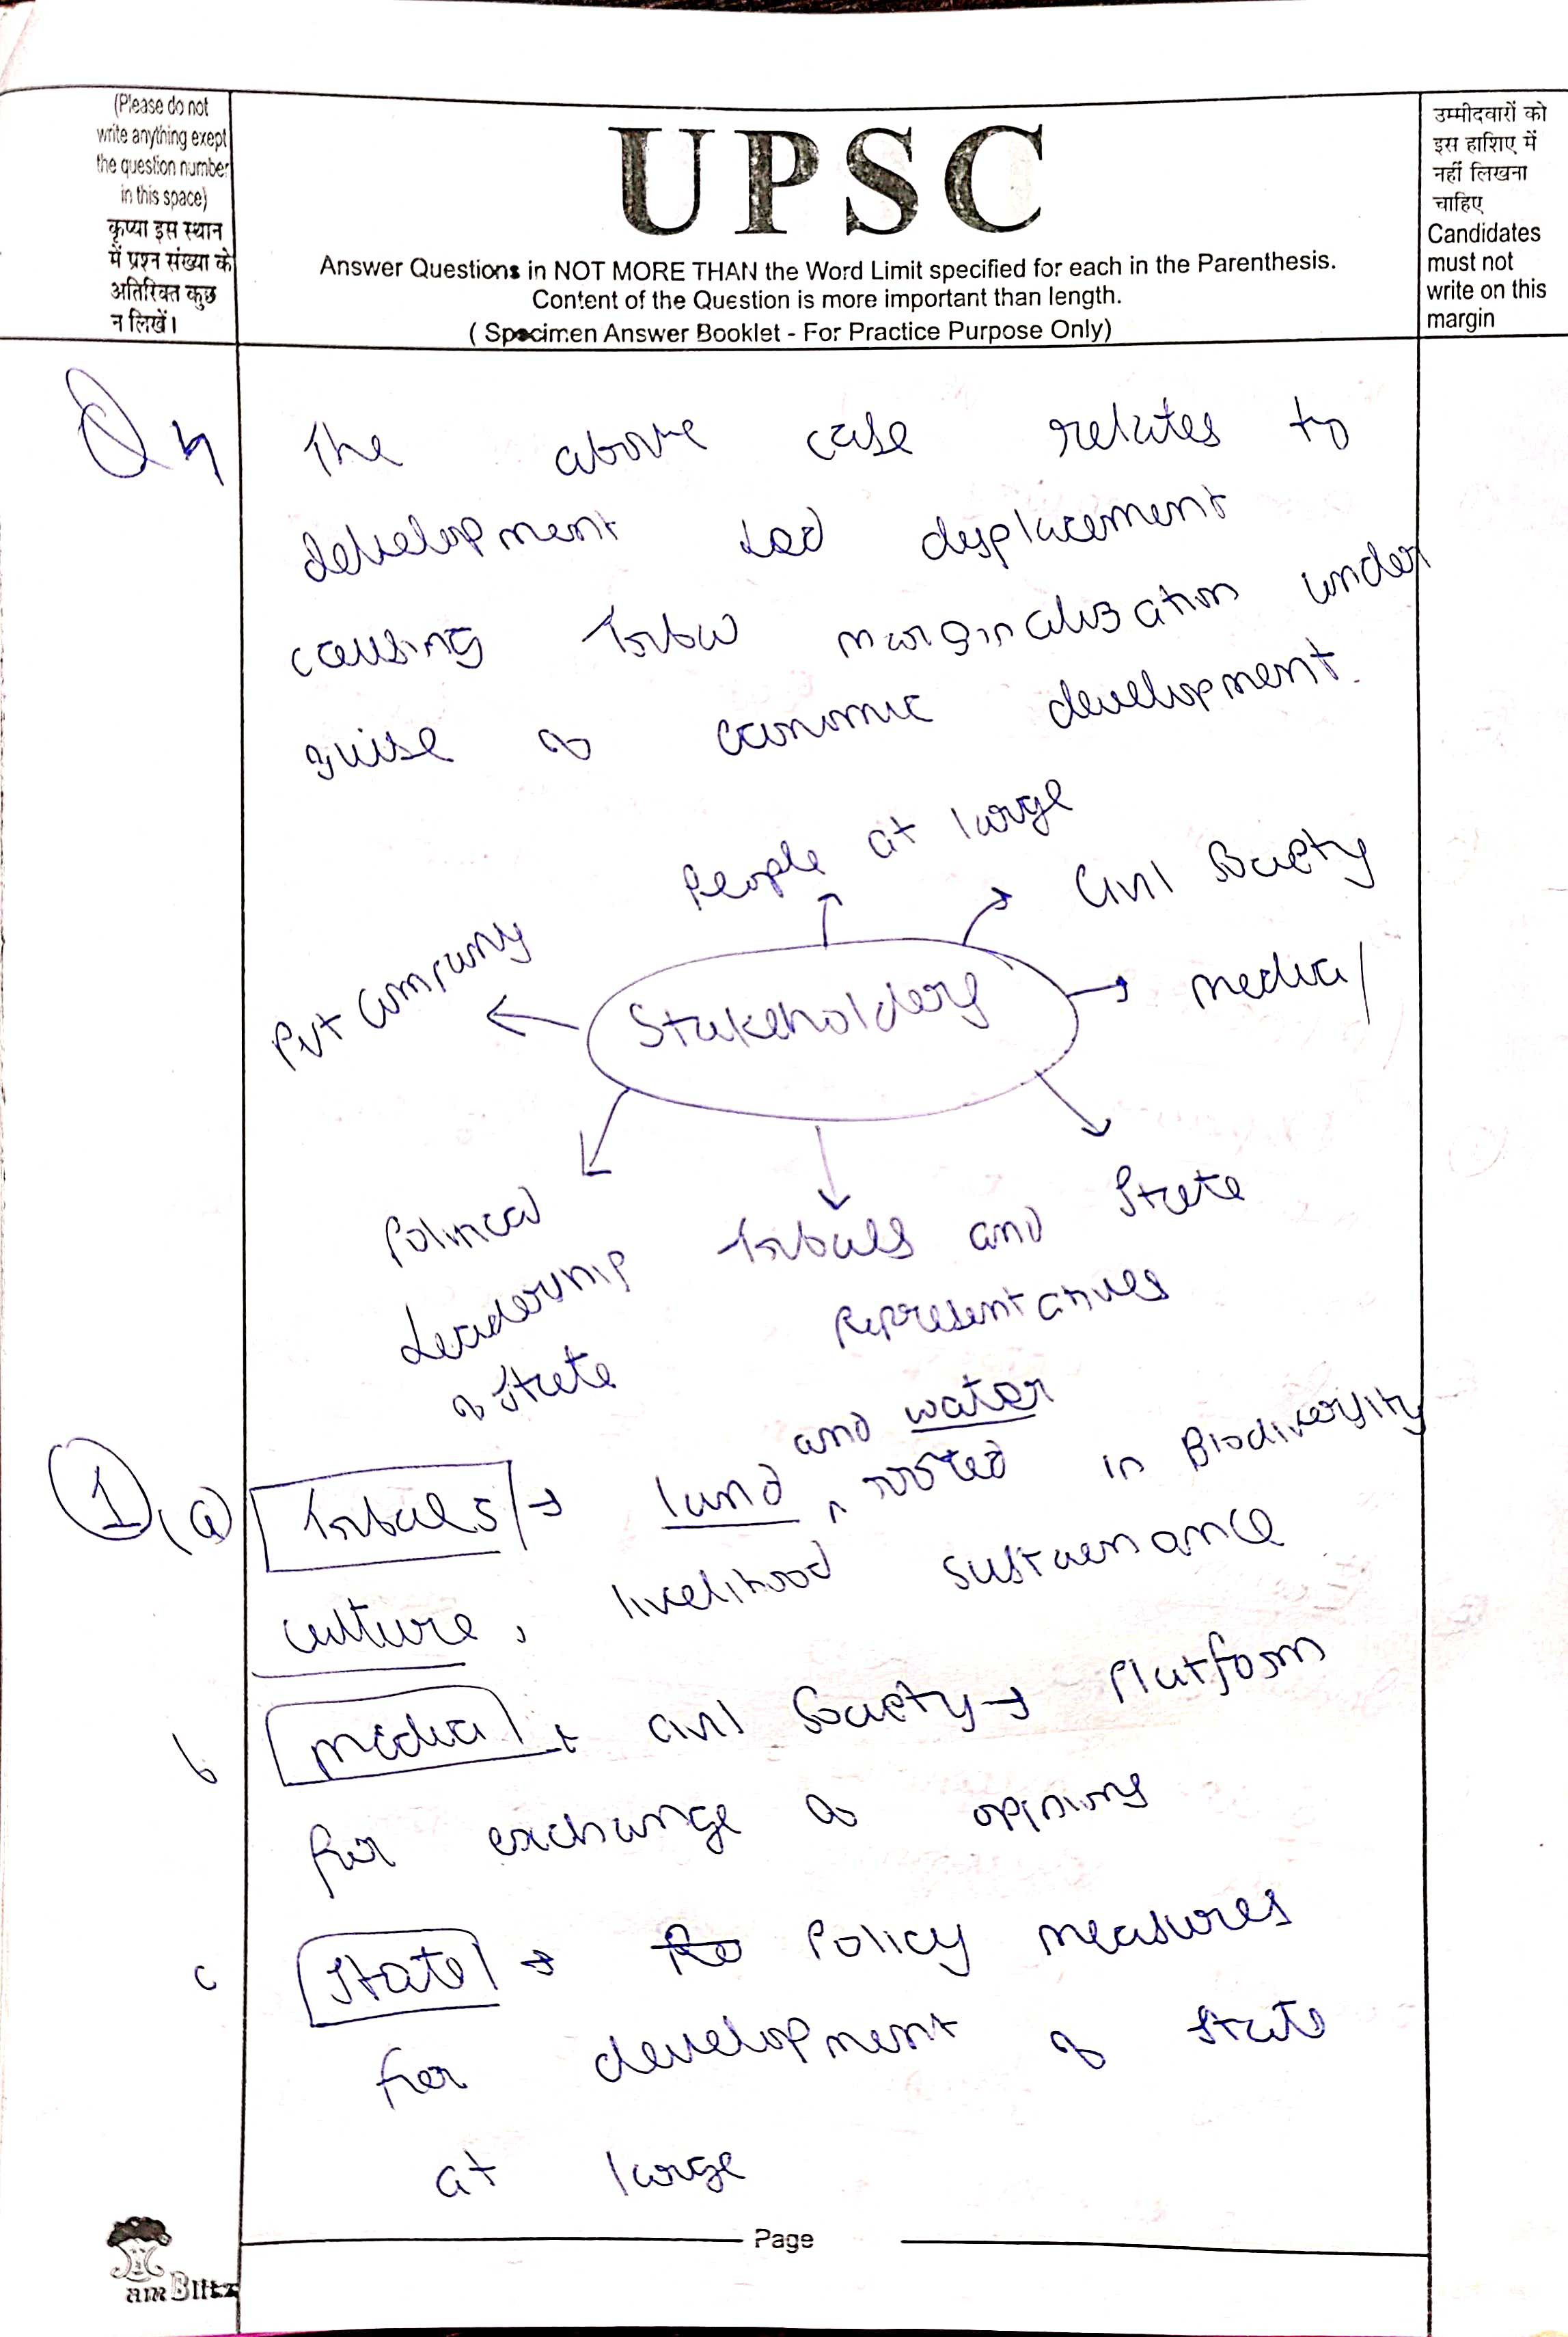 (Please do not
write anything exept
the question number
in this space)
कृप्या इस स्थान
में प्रश्न संख्या के
अतिरिक्त कुछ
न लिखें।
UPSC
Answer Questions in NOT MORE THAN the Word Limit specified for each in the Parenthesis.
Content of the Question is more important than length.
( Specimen Answer Booklet - For Practice Purpose Only)
उम्मीदवारों को
इस हाशिए में
नहीं लिखना
चाहिए
Candidates
must not
write on this
margin
The above case relates to
development led displacement
causing tribal marginalization under
guise of economic development.
People at large
Civil Society
media
Pvt Company
Stakeholders
Political
Leadership
of State
Tribals and
representatives
State
① (a) Tribals → land and water rooted in Biodiversity
culture, livelihood sustenance
b media + civil Society → Platform
for exchange of opinions
c State → Policy measures
for development of state
at large
Page
am Blitz